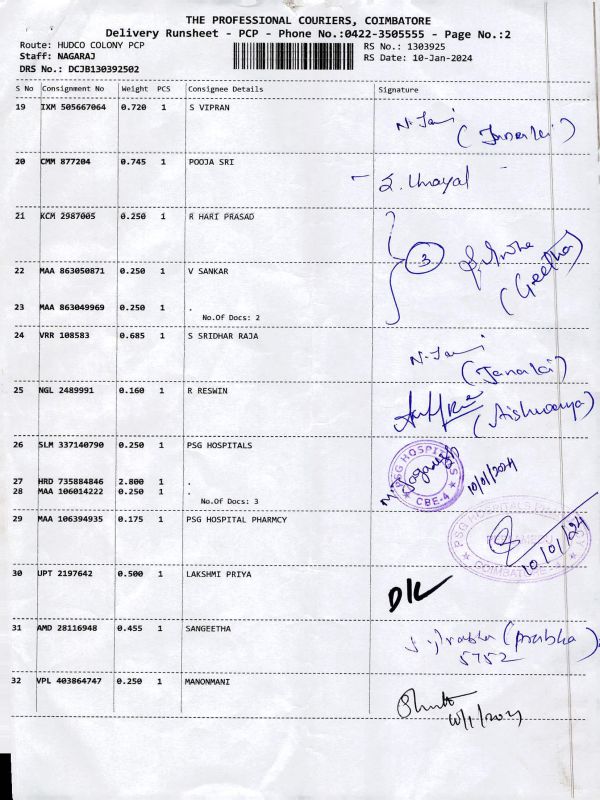 THE PROFESSIONAL COURIERS, COIMBATORE
Delivery Runsheet - PCP - Phone No.:0422-3505555 - Page No.:2
Route: HUDCO COLONY PCP RS No.: 1303925
Staff: NAGARAJ RS Date: 10-Jan-2024
DRS No.: DCJB130392502
S No Consignment No Weight PCS Consignee Details Signature
19 IXM 505667064 0.720 1 S VIPRAN
(Janaki)
20 CMM 877204 0.745 1 POOJA SRI
21 KCM 2987005 0.250 1 R HARI PRASAD
3
(Geetha)
22 MAA 863050871 0.250 1 V SANKAR
23 MAA 863049969 0.250 1 .
No.Of Docs: 2
24 VRR 108583 0.685 1 S SRIDHAR RAJA
(Janaki)
25 NGL 2489991 0.160 1 R RESWIN
(Aishwarya)
26 SLM 337140790 0.250 1 PSG HOSPITALS
PSG HOSPITALS
CBE-4
10/01/2024
27 HRD 735884846 2.800 1 .
28 MAA 106014222 0.250 1 .
No.Of Docs: 3
29 MAA 106394935 0.175 1 PSG HOSPITAL PHARMCY
COIMBATORE
10/01/24
30 UPT 2197642 0.500 1 LAKSHMI PRIYA
31 AMD 28116948 0.455 1 SANGEETHA
(Prabha)
5752
32 VPL 403864747 0.250 1 MANONMANI
10/1/2024